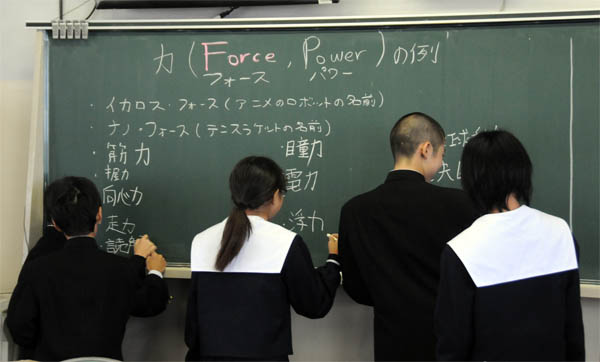 力(Force, Power)の例
フォース パワー
・イカロス・フォース(アニメのロボットの名前)
・ナノ・フォース(テニスラケットの名前)
・筋力
・握力
・向心力
・走力
・読
・瞳力
・電力
・浮力
球